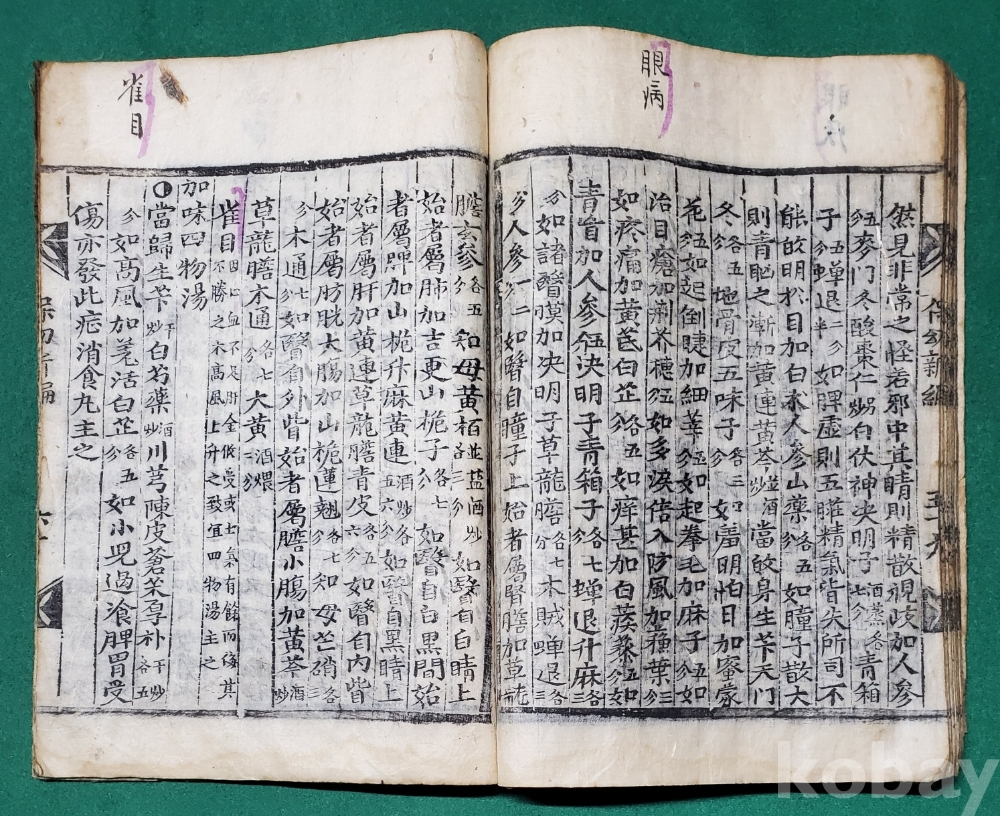 眼病
然見非常之怪若邪中其睛則精散視歧加人參
五分麥門冬酸棗仁炒白伏神決明子酒蒸各七分青箱
子五分蟬退二分半如脾虛則五睢精氣皆失所司不
能的明於目加白朮人參山藥各五分如瞳子散大
則青眡之漸加黃連黃芩並酒炒當的身生芐天門
冬各五分地骨皮五味子各三分如羞明怕日加蜜蒙
花五分如起倒睫加細莘五分如起拳毛加麻子五分如
治目瘡加荊芥穗五分如多淚倍入防風加種葉三分
如疼痛加黃芪白芷各五分如痒甚加白蒺藜五分如
青盲加人參五分決明子青箱子各七分蟬退升麻各三
分如諸瞖膜加決明子草龍膽各七分木賊蟬退各三
分人參一分二如瞖自瞳子上始者屬瞖膽加草龍
保幼新編
膽玄參各五分知母黃栢並塩酒炒各三分如瞖自白睛上
始者屬肺加吉更山梔子各七分如瞖自白黑間始
者屬脾加山梔升麻黃連酒炒各六分如瞖自黑睛上
始者屬肝加黃連草龍膽青皮各五六分如瞖自內眥
始者屬肪胱大腸加山梔蓮翹各七分知母芒硝各三
分木通七分如瞖自外眥始者屬膽小腸加黃芩酒炒
草龍膽木通各七分大黃酒煨二分
雀目
雀目因心血不足肝全低受或士气有餘而侮其
不勝之木高風上升之致宜四物湯主之
加味四物湯
當歸生芐干炒白芍藥酒炒川芎陳皮蒼朮厚朴干炒各五
分如高風加羌活白芷各五分如小兒過飡脾胃受
傷亦發此症消食丸主之
保幼新編
六十
kobay